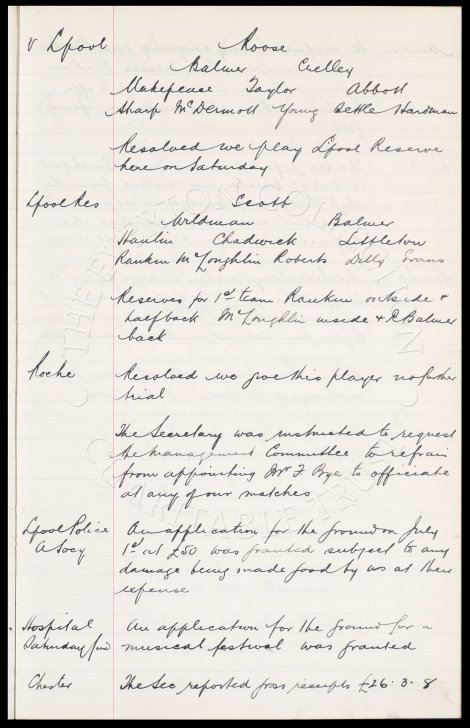 v Lpool Roose
Balmer Crelley
Makepeace Taylor Abbott
Sharp McDermott Young Settle Hardman
Resolved we play Lpool Reserve
here on Saturday
Lpool Res Scott
Wildman Balmer
Hanlin Chadwick Littleton
Rankin McLoughlin Roberts Dilly Evans
Reserves for 1st team Rankin outside &
half back McLoughlin inside & R Balmer
back
Roche Resolved we give this player no further
trial
The Secretary was instructed to request
the management Committee to refrain
from appointing Mr F. Bye to officiate
at any of our matches
Lpool Police An application for the ground on July
A Socy 1st at £50 was granted subject to any
damage being made good by us at their
expense
Hospital An application for the ground for a
Saturday fund musical festival was granted
Chester The Sec reported gross receipts £26.3.8
THE EVERTON COLLECTION
CHARITABLE TRUST